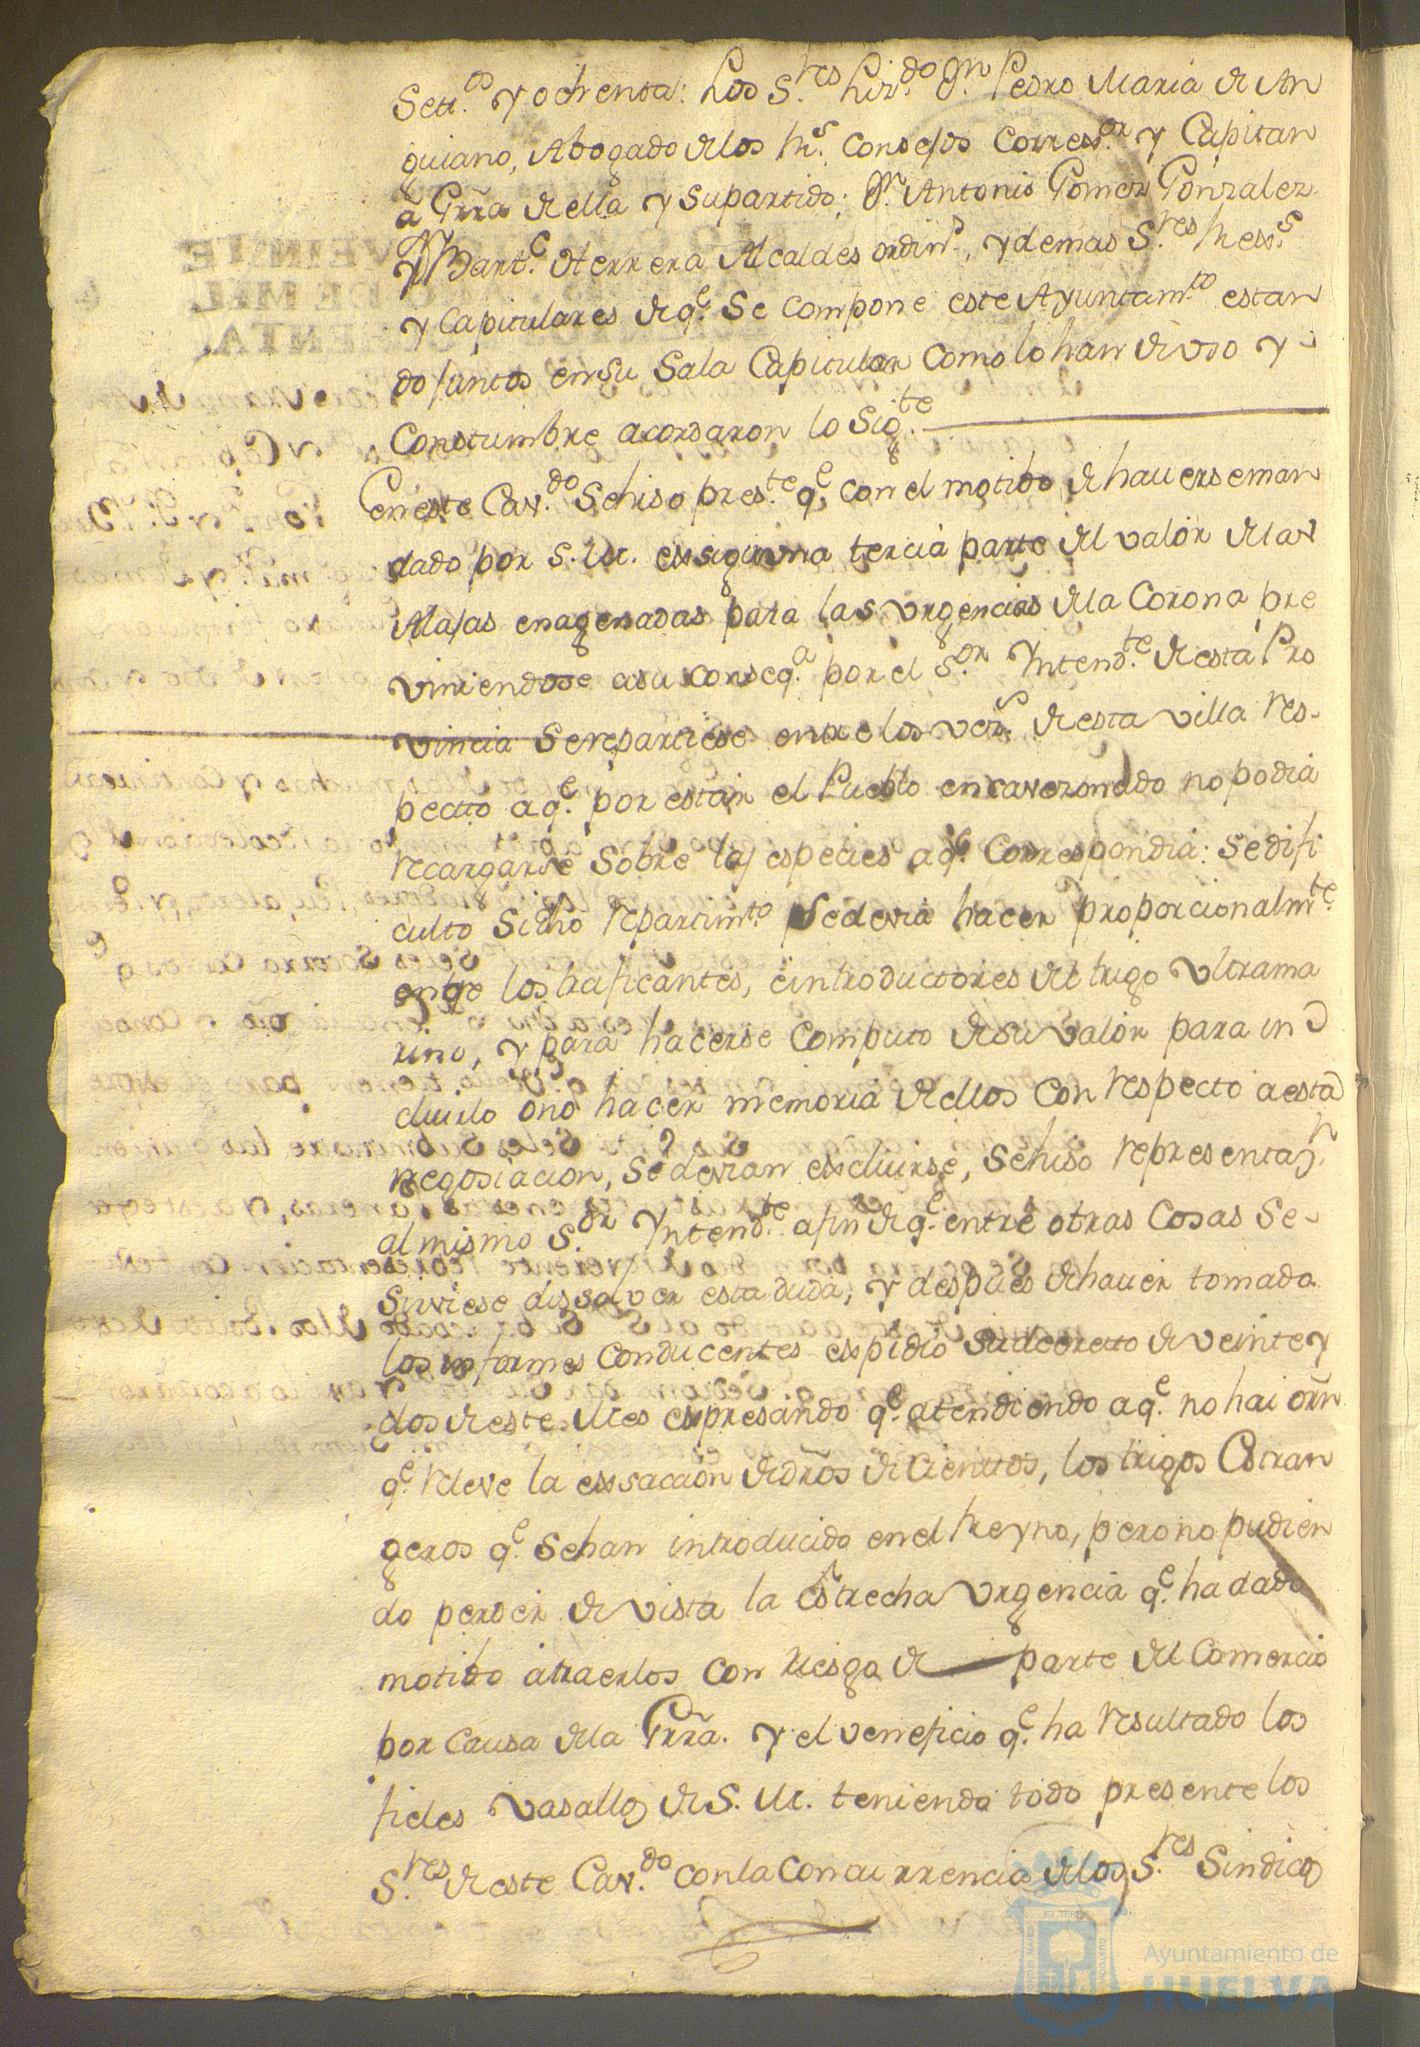 Setz.os y ochenta: Los S.res Liz.do Dn. Pedro Maria de An
guiano, Abogado de los Rs. Consejos Correxor. y Capitan
a Grra de ella y su partido; Dn. Antonio Gomez Gonzalez
y Bart.e Herrera Alcaldes ordins., y demas S.res Rexs.
y Capitulares de q.e Se compone este Ayuntam.to estan
do juntos en su Sala Capitular como lo han de vso y
Constumbre acordaron lo Sig.te
En este Cav.do Se hiso pres.te q.e con el motibo de haverse man
dado por S. M. exsigir vna tercia parte del valor de las
Alajas enagenadas para las vrgencias de la Corona pre
viniendose a su conseq.a por el S.or Yntend.te de esta Pro
vincia Se repartiese entre los vez.s de esta villa res-
pecto a q.e por estar el Pueblo encavezonado no podia
recargarse Sobre las especies a q.e Correspondia: Se difi
culto Si dho repartim.to Se devia hacer proporcionalm.te
entre los traficantes, e introductores del trigo vltrama
rino, y para hacerse computo de su valor para in
cluirlo o no hacer memoria de ellos con respecto a esta
negosiacion, Se devian excluirse, Se hiso representaz.n
al mismo S.or Yntend.te a fin de q.e entre otras cosas Se
Sirviese dissolver esta duda, y despues de haver tomado
los informes conducentes expidio su decreto de veinte y
dos de este Mes expresando q.e atendiendo a q.e no hai orn
q.e releve la exsaccion de dros de Cientos, los trigos Estran
geros q.e Se han introducido en el Reyno, pero no pudien
do perder de vista la Estrecha vrgencia q.e ha dado
motibo atraerlos con riesgo de parte del Comercio
por causa de la Grra. y el veneficio q.e ha resultado los
fieles vasallos de S. M. teniendo todo presente los
S.res de este Cav.do con la concurrencia de los S.res Sindicos
Ayuntamiento de
HUELVA